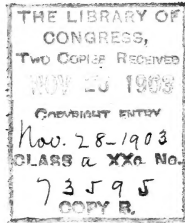 THE LIBRARY OF
CONGRESS,
Two Copies Received
NOV 28 1903
Copyright Entry
Nov. 28-1903
CLASS a XXc. No.
73595
COPY B.